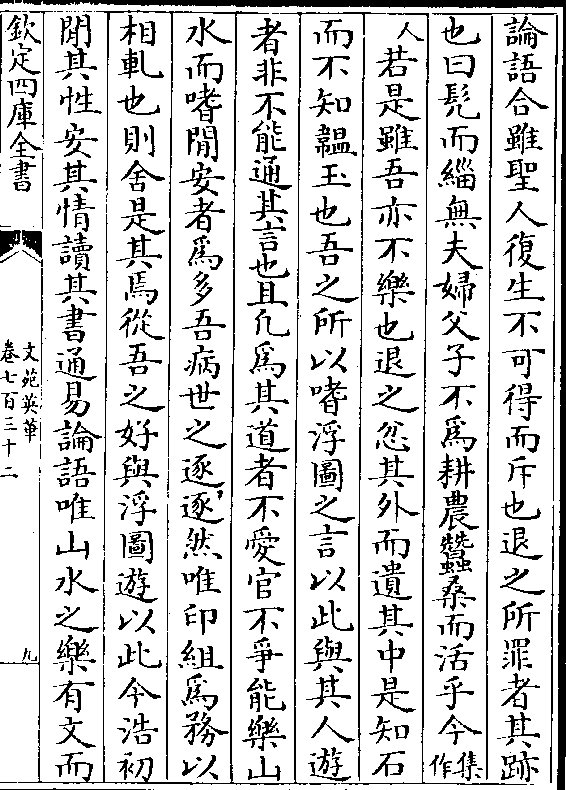 論語合雖聖人復生不可得而斥也退之所罪者其跡
也曰髠而緇無夫婦父子不為耕農蠶桑而活乎今集作
人若是雖吾亦不樂也退之忿其外而遺其中是知石
而不知韞玉也吾之所以嗜浮圖之言以此與其人遊
者非不能通其言也且凡為其道者不愛官不爭能樂山
水而嗜閒安者為多吾病世之逐逐然唯印組為務以
相軋也則舍是其焉從吾之好與浮圖遊以此今浩初
閒其性安其情讀其書通易論語唯山水之樂有文而
欽定四庫全書
文苑英華
卷七百三十二
九